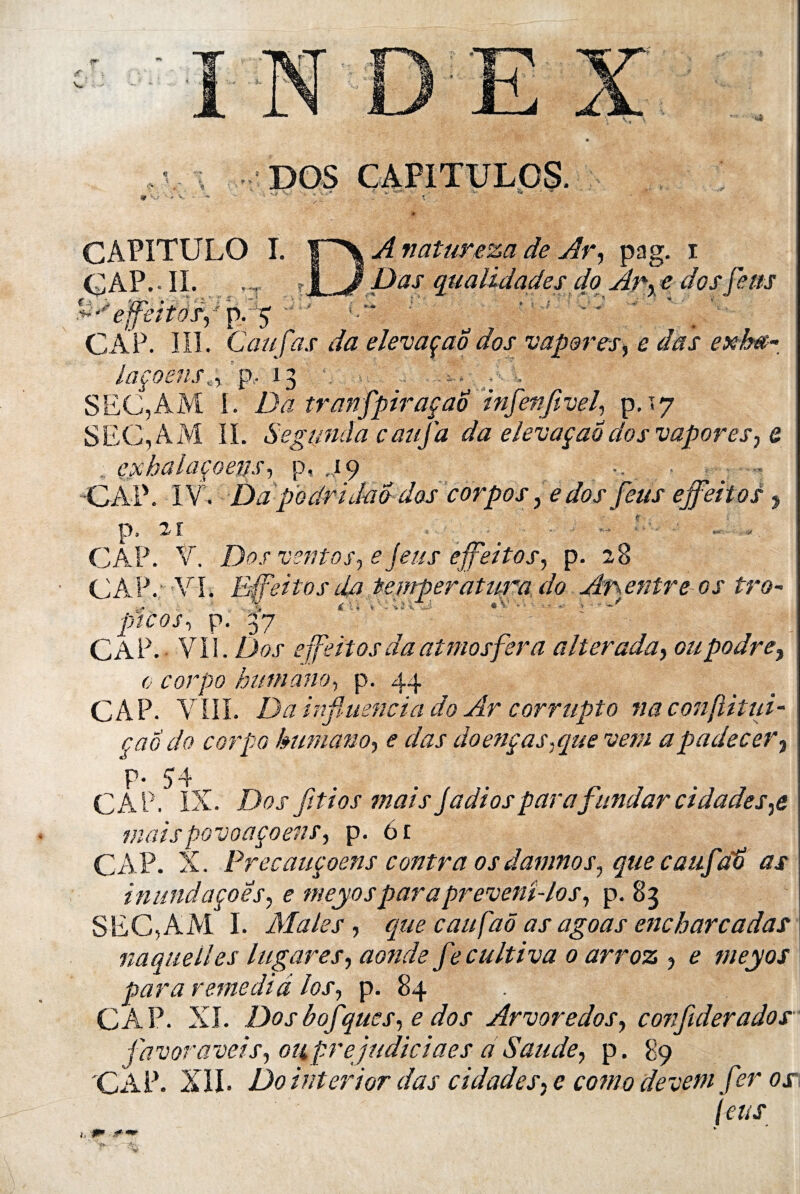 INDEX
DOS CAPITULOS.
CAPITULO I. DA natureza de Ar, pag. 1
CAP. II. Das qualidades do Ar, e dos ſeus
effeitos, p. 5
CAP. III. Cauſas da elevaçaõ dos vapores, e das exha-
laçoens, p. 13
SEC,AM I. Da tranſpiraçaõ inſenſivel, p. 17
SEC,AM II. Segunda cauſa da elevaçaõ dos vapores, e
exhalaçoens, p, 19
CAP. IV. Da podridaõ dos corpos, e dos ſeus effeitos,
p. 21
CAP. V. Dos ventos, e ſeus effeitos, p. 28
CAP. VI. Effeitos da temperatura do Ar entre os tro-
picos, p. 37
CAP. VII. Dos effeitos da atmosfera alterada, ou podre,
o corpo humano, p. 44
CAP. VIII. Da influencia do Ar corrupto na conſtitui-
çaõ do corpo humano, e das doenças, que vem a padecer,
p. 54
CAP. IX. Dos ſitios mais ſadios para fundar cidades, e
mais povoaçoens, p. 61
CAP. X. Precauçoens contra os damnos, que cauſaõ as
inundaçoẽs, e meyos para preveni-los, p. 83
SEC,AM I. Males, que cauſaõ as agoas encharcadas
naquelles lugares, aonde ſe cultiva o arroz, e meyos
para remediá los, p. 84
CAP. XI. Dos boſques, e dos Arvoredos, conſiderados
favoraveis, ou prejudiciaes á Saude, p. 89
CAP. XII. Do interior das cidades, e como devem ſer os
ſeus